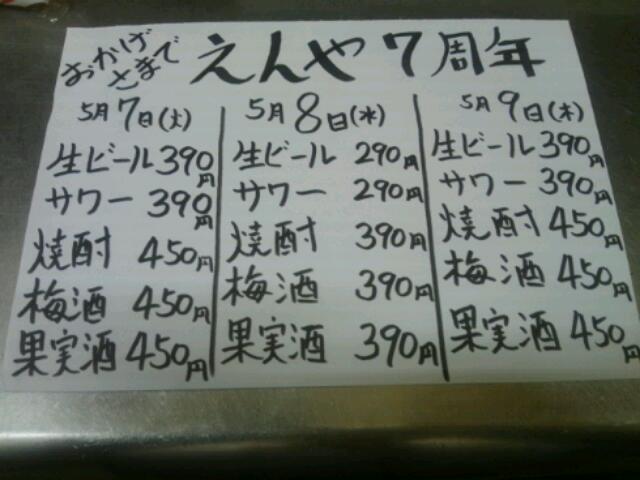 おかげさまで えんや7周年
5月7日(火)
生ビール 390円
サワー 390円
焼酎 450円
梅酒 450円
果実酒 450円
5月8日(水)
生ビール 290円
サワー 290円
焼酎 390円
梅酒 390円
果実酒 390円
5月9日(木)
生ビール 390円
サワー 390円
焼酎 450円
梅酒 450円
果実酒 450円